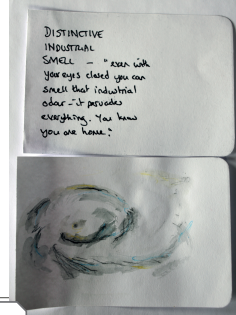 DISTINCTIVE
INDUSTRIAL
SMELL — "even with
your eyes closed you can
smell that industrial
odour - it pervades
everything. You know
you are home."